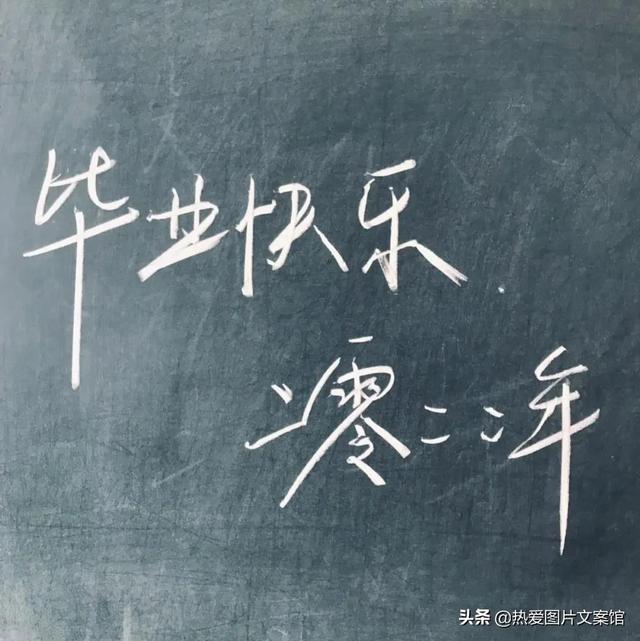 毕业快乐.
二零二二年
头条 @热爱图片文案馆